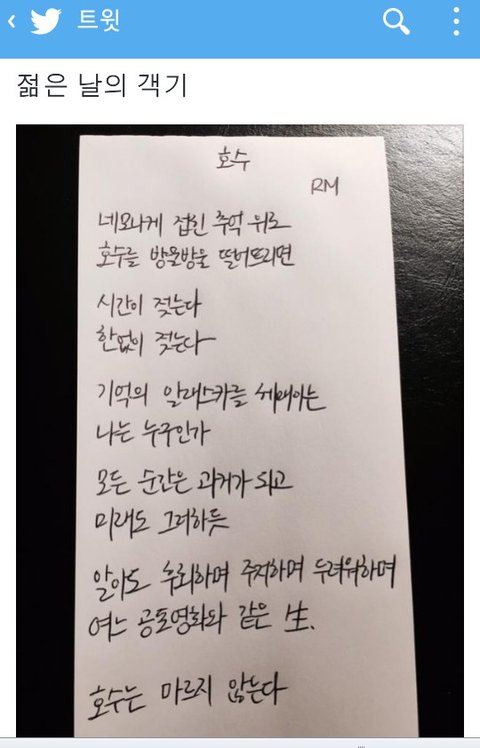 트윗
젊은 날의 객기
호수
RM
네모나게 접힌 추억 위로
호수를 방울방울 떨어뜨리면
시간이 젖는다
한없이 젖는다
기억의 알래스카를 헤매이는
나는 누구인가
모든 순간은 과거가 되고
미래도 그러하듯
알아도 추리하며 주저하며 두려워하며
여느 공포영화와 같은 生.
호수는 마르지 않는다